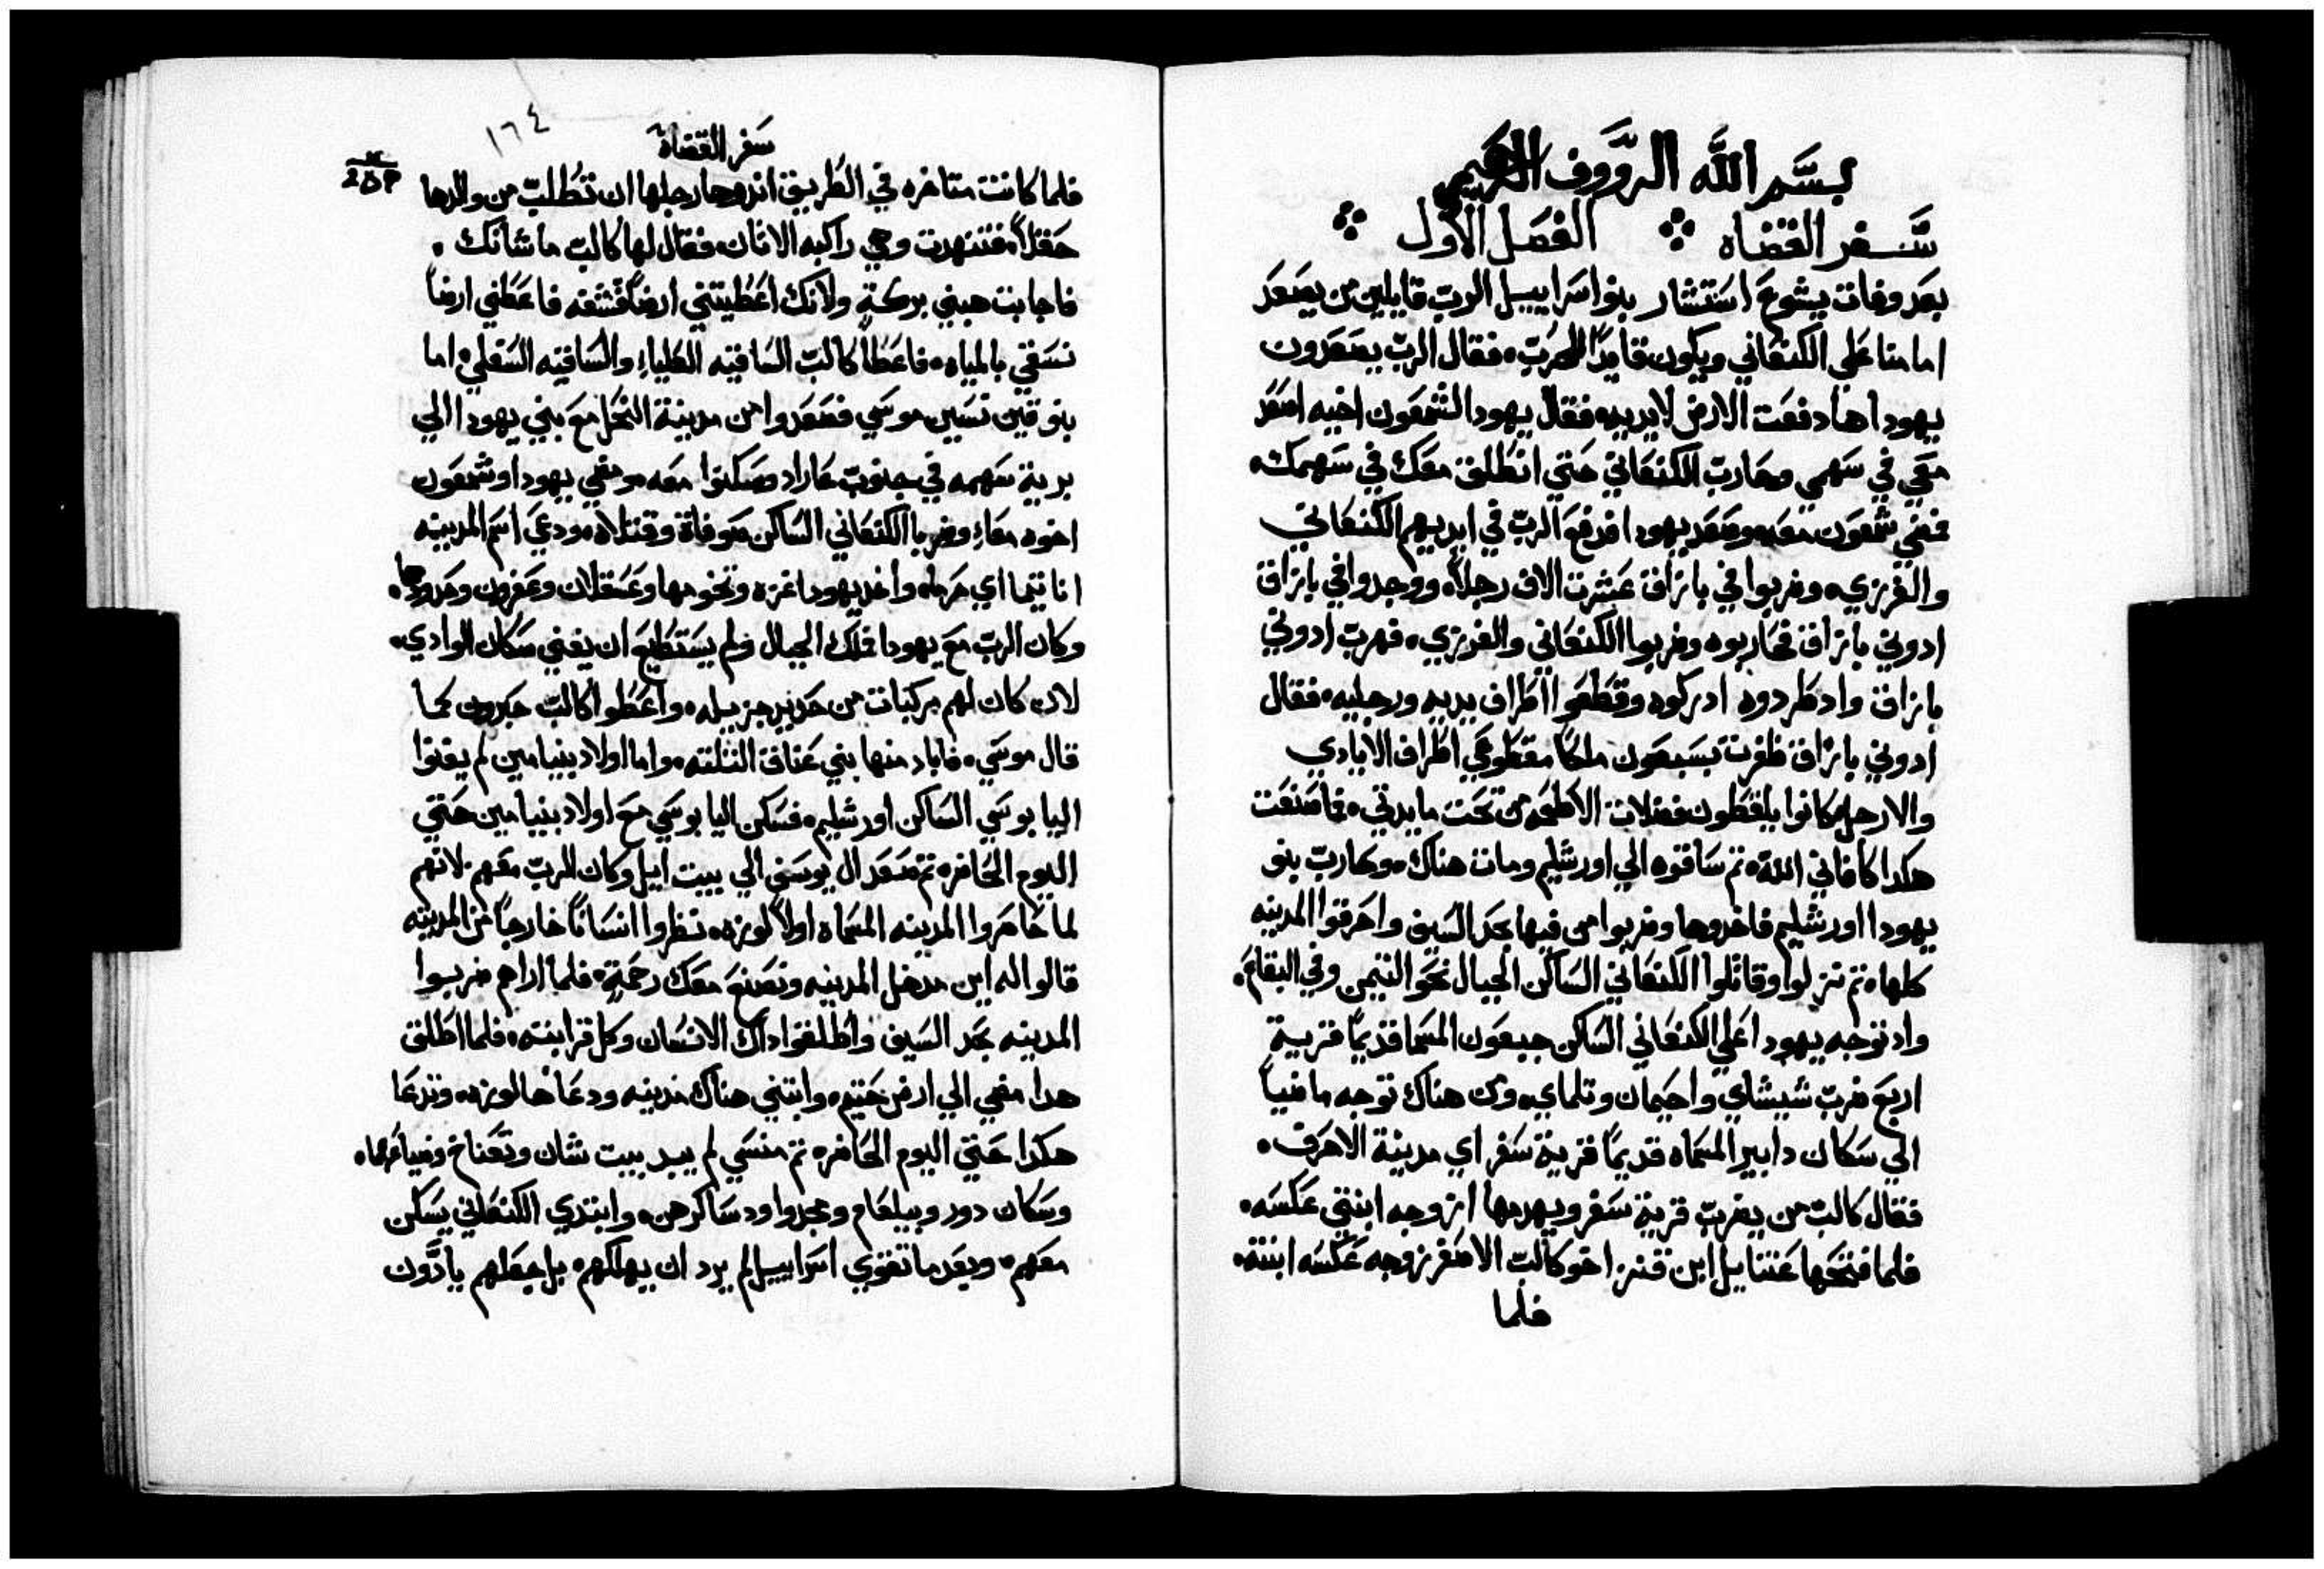 بسم الله الرووف الرحيم
سفر القضاه ⁘ الفصل الاول ⁘
بعد وفات يشوع استشار بنو اسراييل الرب قايلين من يصعد
امامنا علي الكنعاني ويكون قايدًا للحرب. فقال الرب يصعدون
يهودا هادفعت الارض لايديه. فقال يهودا لشمعون اخيه اصعد
معي في سهمي وحارب الكنعاني حتي انطلق معك في سهمك.
فمضي شمعون معه. وصعد يهودا فدفع الرب في ايديهم الكنعاني
والفرزي. وضربوا في بازاق عشرت الاف رجلاً. ووجدوا في بازاق
ادوني بازاق فحاربوه وضربوا الكنعاني والفرزي. فهرب ادوني
بازاق واد طردوه ادركوه وقطعوا اطراف يديه ورجليه. فقال
ادوني بازاق ظفرت بسبعون ملكا مقطوعي اطراف الايادي
والارجل كانوا يلقطون فضلات الاطعمه من تحت مايدتي. فما صنعت
هكدا كافاني الله. تم ساقوه الي اورشليم ومات هناك. وحارب بنو
يهودا اورشليم فاخدوها وضربوا من فيها بحد السيف واحرقوا المدينه
كلها. تم نزلوا وقاتلوا الكنعاني الساكن الجبال نحو التيمن وفي البقاع.
واد توجه يهودا علي الكنعاني الساكن جبعون المسما قديمًا قرية
اربع ضرب شيشاي واحيمان وتلماي. ومن هناك توجه ماضياً
الي سكان دابير المسماه قديمًا قرية سفر اي مدينة الاحرف.
فقال كالب من يضرب قرية سفر ويهدمها ازوجه ابنتي عكسه.
فلما فتحها عتنايل ابن قنز اخو كالب الاصغر زوجه عكسه ابنته.
فلما
١٦٤
سفر القضاة
فلما كانت متاخره في الطريق اندرها رجلها ان تطلب من والدها
حقلاً. فتنهدت وهي راكبه الاتان. فقال لها كالب ما شانك.
فاجابت هبني بركة ولانك اعطيتني ارضًا نشفه فاعطني ارضاً
تسقي بالمياه. فاعطاً كالب الساقيه العلياء والساقيه السفلي. اما
بنو قين نسيب موسي فصعدوا من مدينة النخل مع بني يهودا الي
برية سهمه في جنوب عاراد وسكنوا معه. ومضي يهودا وشمعون
اخوه معاء وضربا الكنعاني الساكن صوفاة وقتلاه. ودعي اسم المدينه
اناتيما اي حرماه واخد يهودا غزه وتخومها وعسقلان وعقرون وحدودها.
وكان الرب مع يهودا فملك الجبال ولم يستطيع ان يفني سكان الوادي.
لان كان لهم مركبات من حديد جزيله. واعطوا كالب حبرون كما
قال موسي. فاباد منها بني عناق التلته. واما اولاد بنيامين لم يفنوا
اليابوسي الساكن اورشليم. فسكن اليابوسي مع اولاد بنيامين حتي
اليوم الحاضر. تم صعد ال يوسف الي بيت ايل وكان الرب معهم. لانهم
لما حاصروا المدينه المسماه اولاً لوزه. نظروا انسانًا خارجًا من المدينه
قالوا له اين مدخل المدينه ونصنع معك رحمة. فلما اراهم ضربوا
المدينه بحد السيف واطلقوا داك الانسان وكل قرابته. فلما اطلق
هدا مضي الي ارض حتيم. وابتني هناك مدينه ودعاها لوزه. وتدعا
هكدا حتي اليوم الحاضر. تم منسي لم يبد بيت شان وتعناخ وضياعهما.
وسكان دور وبيلعام ومجدوا ودساكرهن. وابتدي الكنعاني يسكن
معهم. وبعد ما تقوي اسراييل لم يرد ان يهلكهم. بل جعلهم يادون